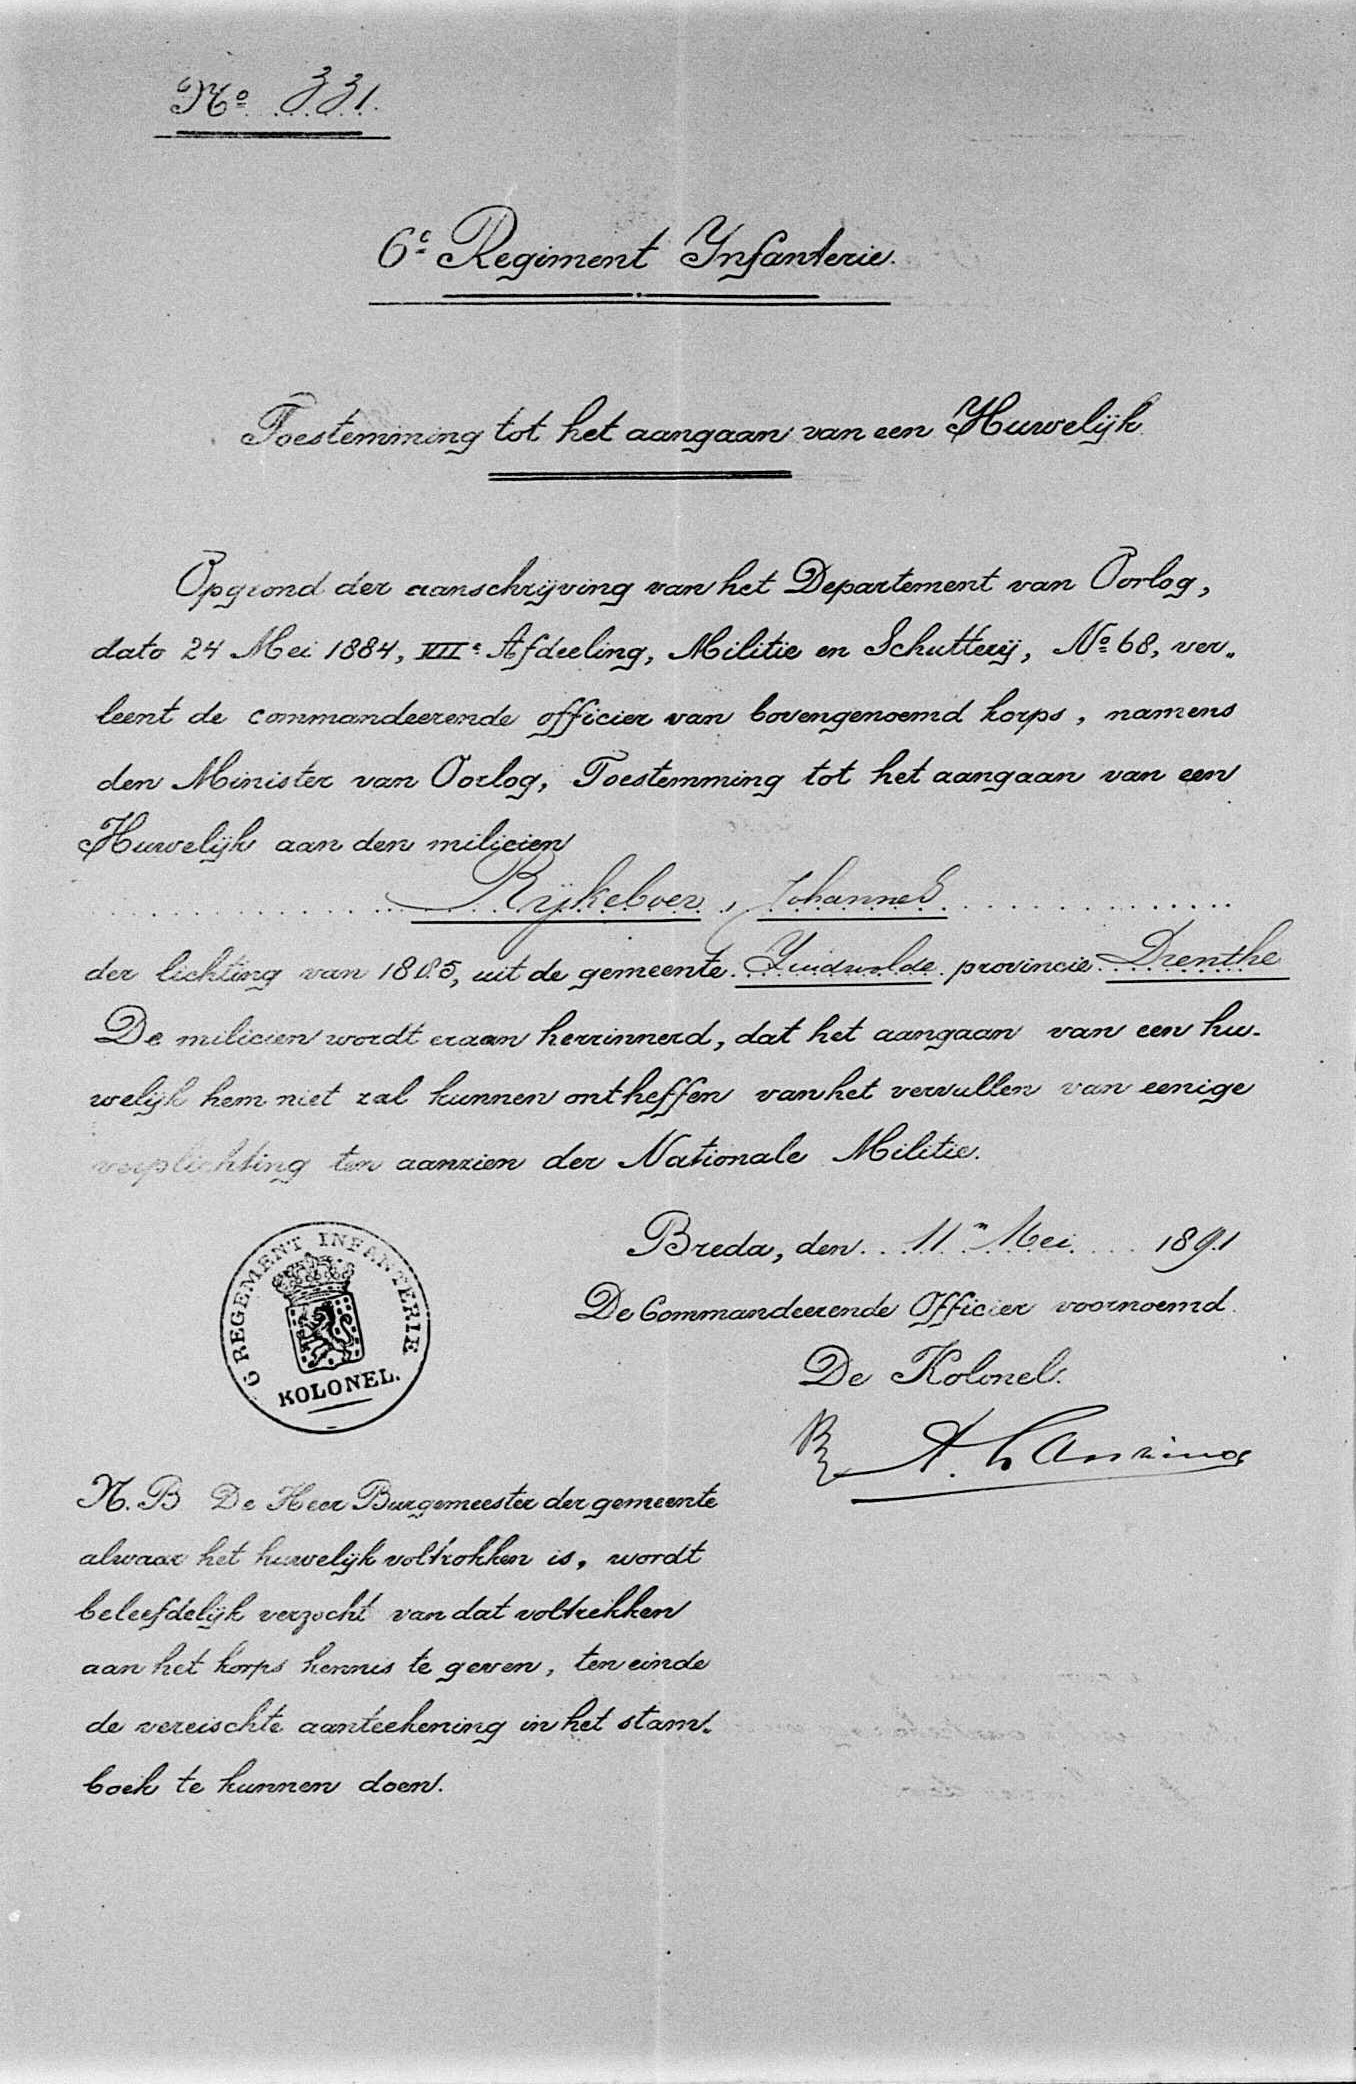 No. 331.
6e Regiment Infanterie.
Toestemming tot het aangaan van een Huwelijk
Opgrond der aanschrijving van het Departement van Oorlog,
dato 24 Mei 1884, VIIe Afdeeling, Militie en Schutterij, No 68, ver„
leent de commandeerende officier van bovengenoemd korps, namens
den Minister van Oorlog, Toestemming tot het aangaan van een
Huwelijk aan den milicien
Rijkeboer, Johannes
der lichting van 1885, uit de gemeente Zuidwolde provincie Drenthe
De milicien wordt eraan herrinnerd, dat het aangaan van een hu-
welijk hem niet zal kunnen ontheffen van het vervullen van eenige
verplichting ten aanzien der Nationale Militie.
Breda, den 11n Mei 1891
De Commandeerende Officier voornoemd.
De Kolonel.
6 REGEMENT INFANTERIE
KOLONEL.
N.B De Heer Burgemeester der gemeente
alwaar het huwelijk voltrokken is, wordt
beleefdelijk verzocht van dat voltrekken
aan het korps kennis te geven, ten einde
de vereischte aanteekening in het stam„
boek te kunnen doen.